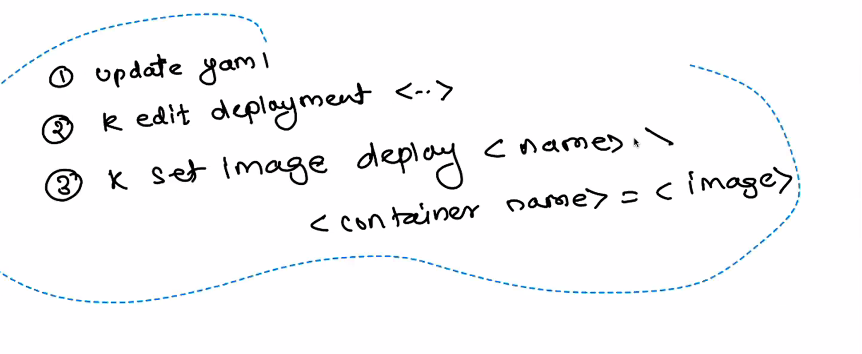 ① update yaml
② k edit deployment <..>
③ k set image deploy <name> \
<container name> = <image>